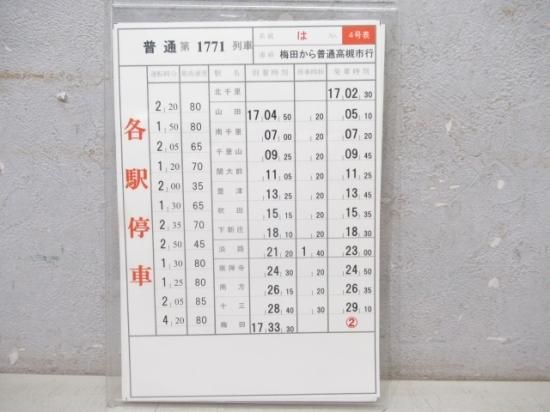 普通 第 1771 列車 は No. 4号表
梅田から普通高槻市行
運転時分 最高速度 駅名 到着時刻 停車時秒 発車時刻
北千里 17 02 30
2 20 80
山田 17 04 50 20 05 10
1 50 80
南千里 07 00 20 07 20
2 05 65
千里山 09 25 20 09 45
1 20 70
関大前 11 05 20 11 25
2 00 35
豊津 13 25 20 13 45
1 30 65
吹田 15 15 20 15 35
2 35 70
下新庄 18 10 20 18 30
2 50 45
淡路 21 20 1 40 23 00
1 30 80
南方 26 15 20 26 35
1 25 80
崇禅寺 24 30 20 24 50
2 05 85
十三 28 40 30 29 10
4 20 80
梅田 17 33 30 ②
各駅停車